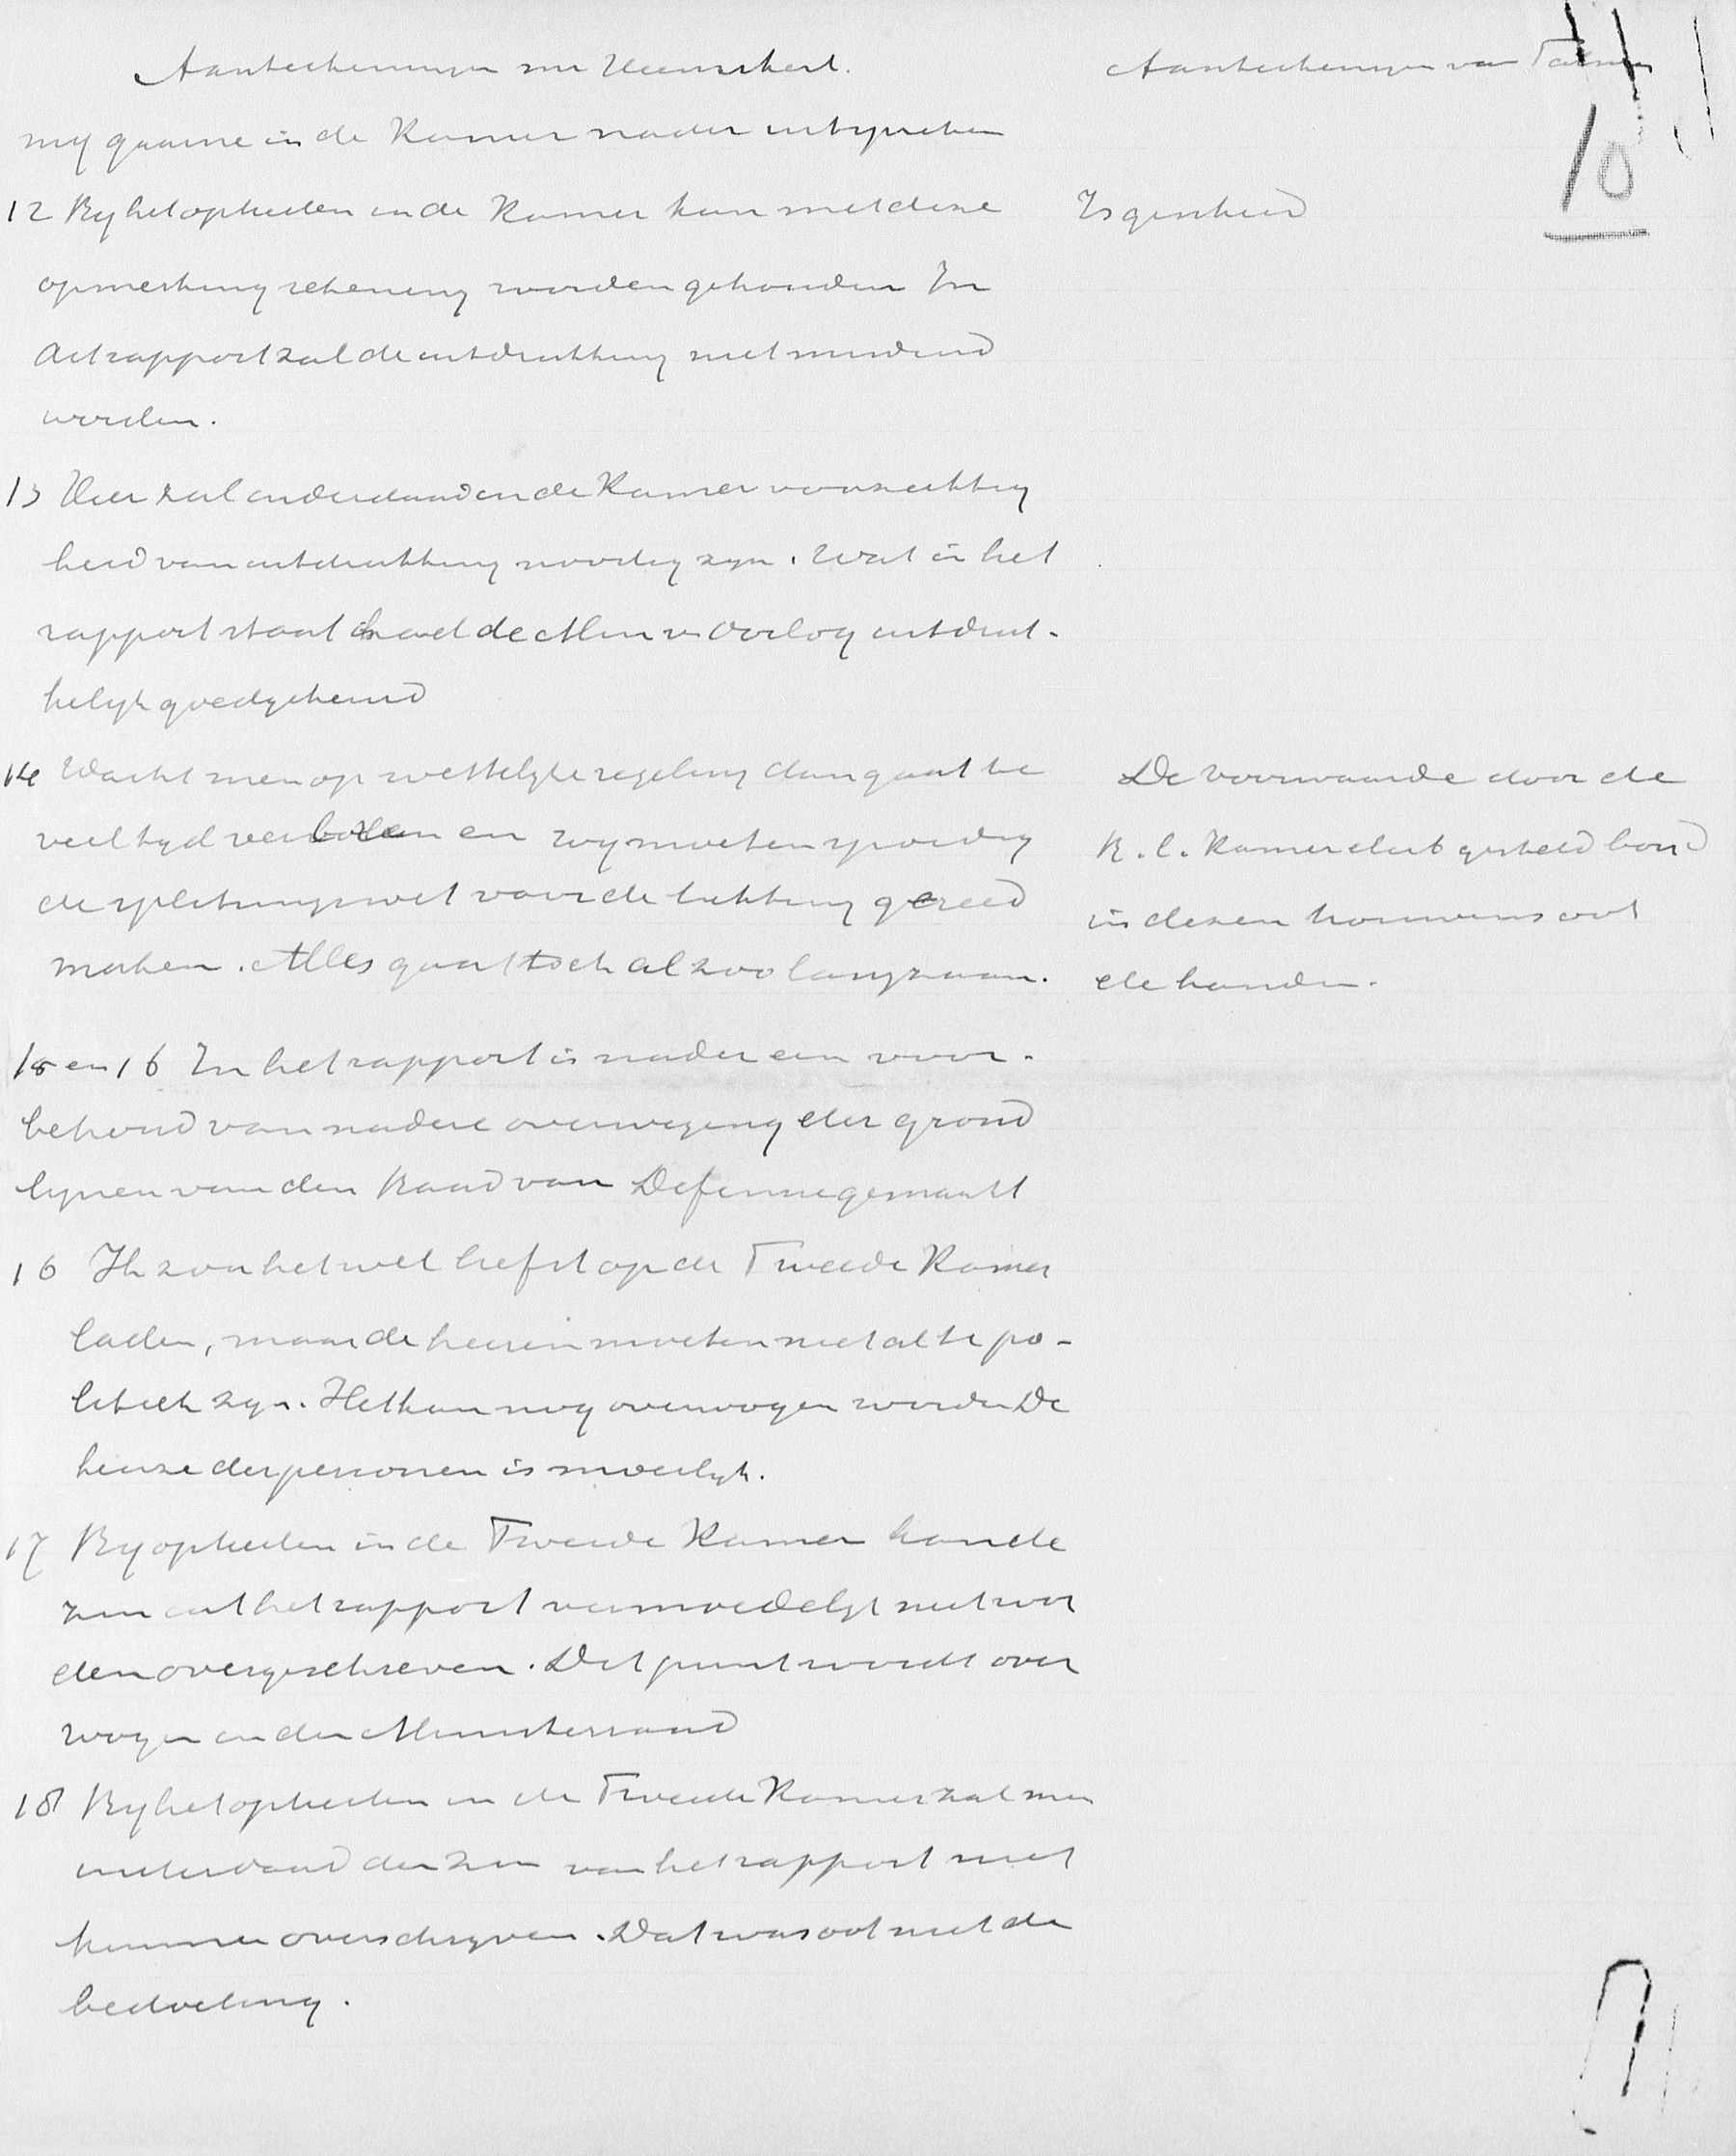 Aanteekeningen van Heemskerk.
mij gaarne in de Kamer nader uitspreken
12 By het optreden in de Kamer kan met deze
opmerking rekening worden gehouden In
het rapport zal de uitdrukking niet
worden.
13 Hier zal inderdaad in de Kamer voorzichtig
heid van uitdrukking noodig zyn. Wat in het
rapport staat had de Min v Oorlog uitdruk-
kelyk goedgekeurd
14 Wacht men op wettelyke regeling dan gaat te
veel tyd verloren en wy moeten spoedig
de splitsingswet voor de lichting gereed
maken. Alles gaat toch al zoo langzaam.
15 en 16 In het rapport is nader een voor-
behoud van nadere overweging der grond
lynen van den Raad van Defensie gemaakt
16 Ik zou het wel liefst op de Tweede Kamer
laden, maar de heeren moeten niet al te po-
litiek zyn. Het kan nog overwogen worden De
keuze der personen is moeilyk.
17 By optreden in de Tweede Kamer kan de
zin uit het rapport vermoedelyk niet wor
den overgeschreven. Dit punt wordt over
wogen in den Ministerraad
18 By het optreden in de Tweede Kamer zal men
uiteraard den zin van het rapport niet
kunnen overschryven. Dat was ook niet de
bedoeling.
Aanteekeningen van Talma
10
Is geschied
De voorwaarde door de
R.C. Kamerclub gesteld bond
in dezen trouwens ook
de handen.